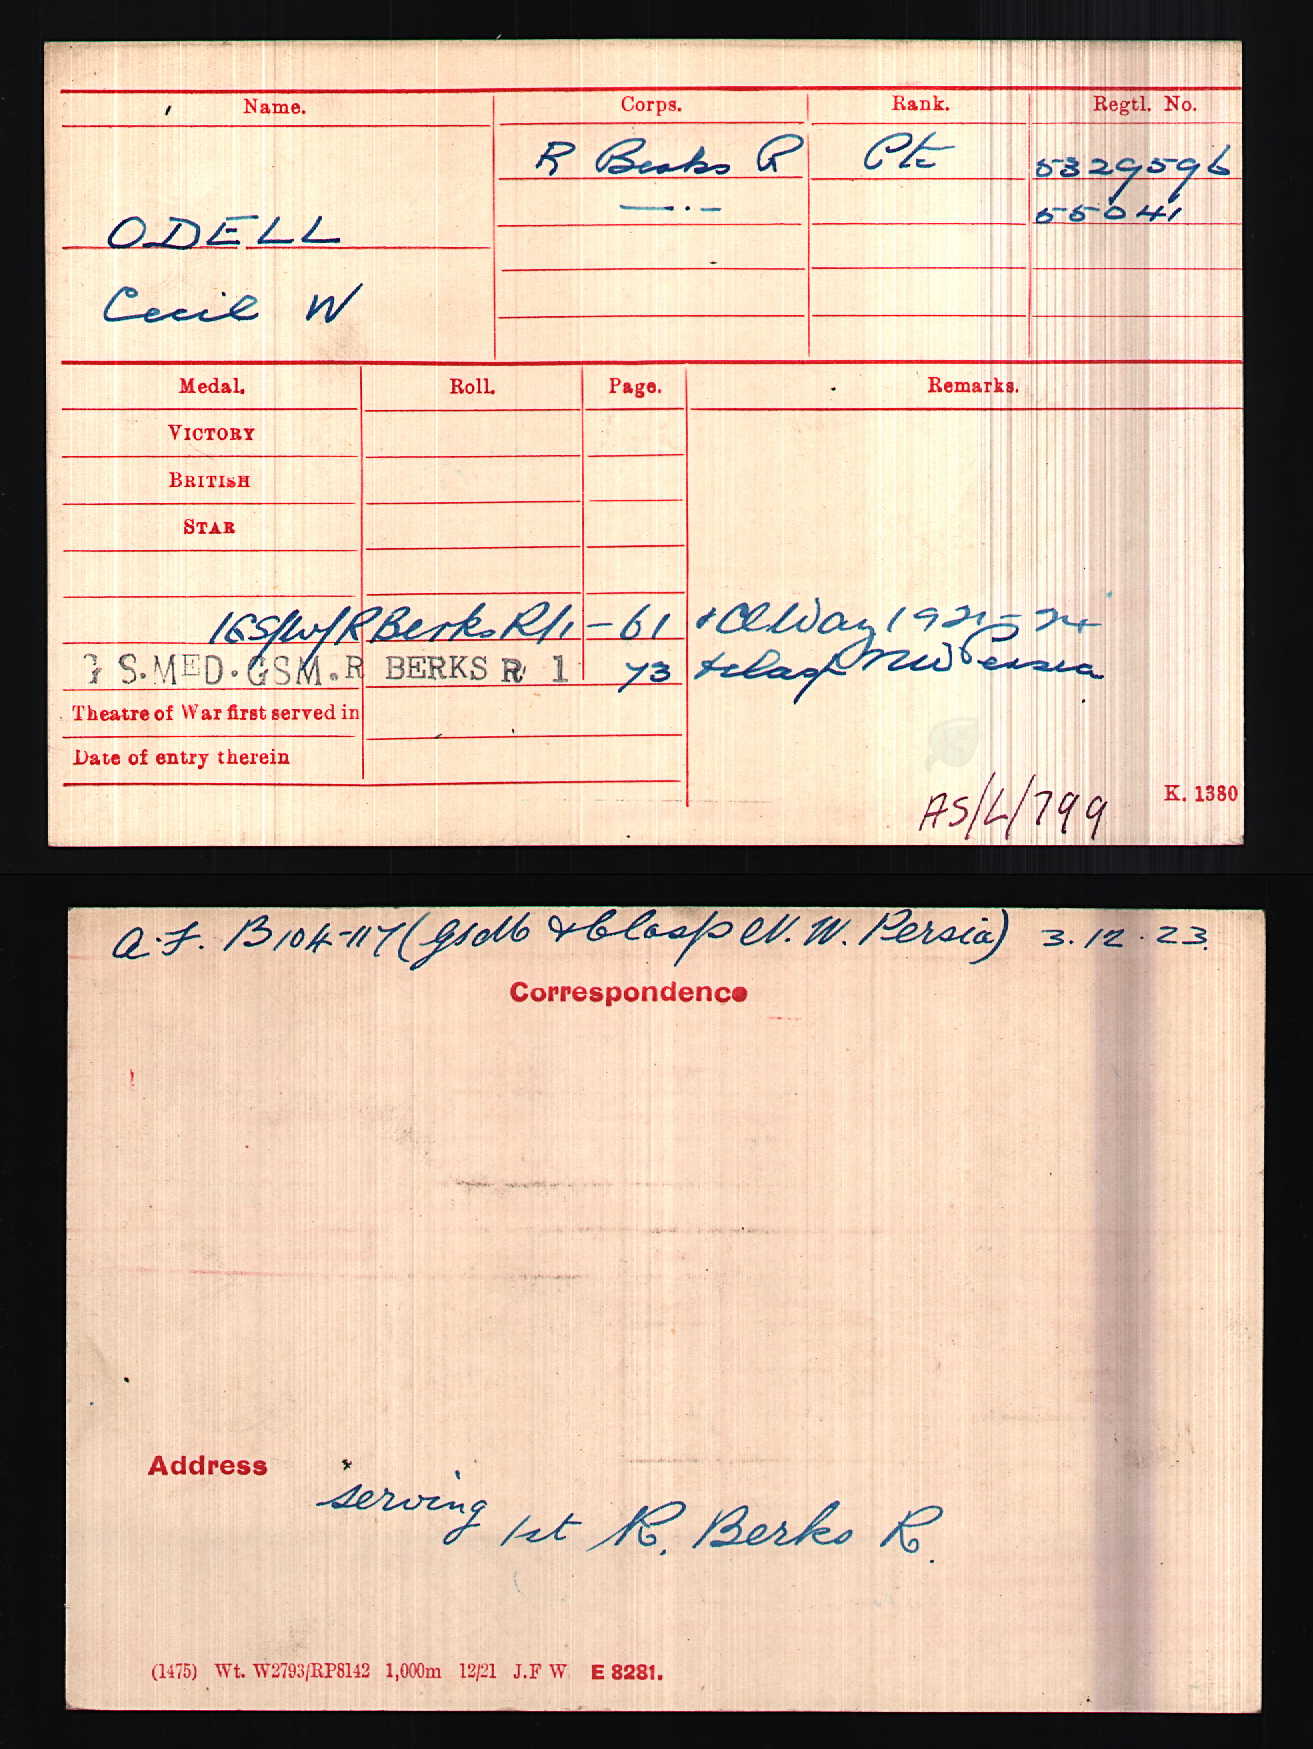 Name. Corps. Rank. Regtl. No.
R Berks R Pte 5329596
—·— 55041
ODELL
Cecil W
Medal. Roll. Page. Remarks.
VICTORY
BRITISH
STAR
IGS/W/R Berks R/1 - 61 + Cl Waz 1921-24
G S.MED.GSM.R BERKS R 1 73 + clasp NW Persia
Theatre of War first served in
Date of entry therein
K. 1380
AS/L/799
A.F. B104-117 (gsm & Clasp N. W. Persia) 3.12.23.
Correspondence
Address
serving 1st R. Berks R.
(1475) Wt. W2793/RP8142 1,000m 12/21 J.F W. E 8281.